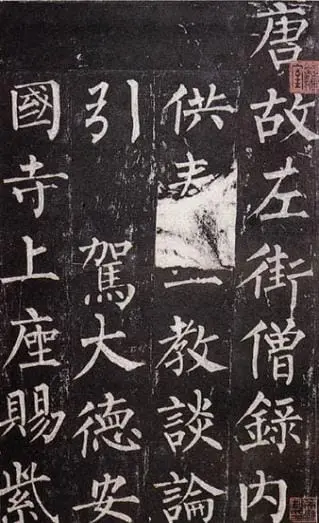 唐故左街僧錄內
供教談論
引 駕大德安
國寺上座賜紫